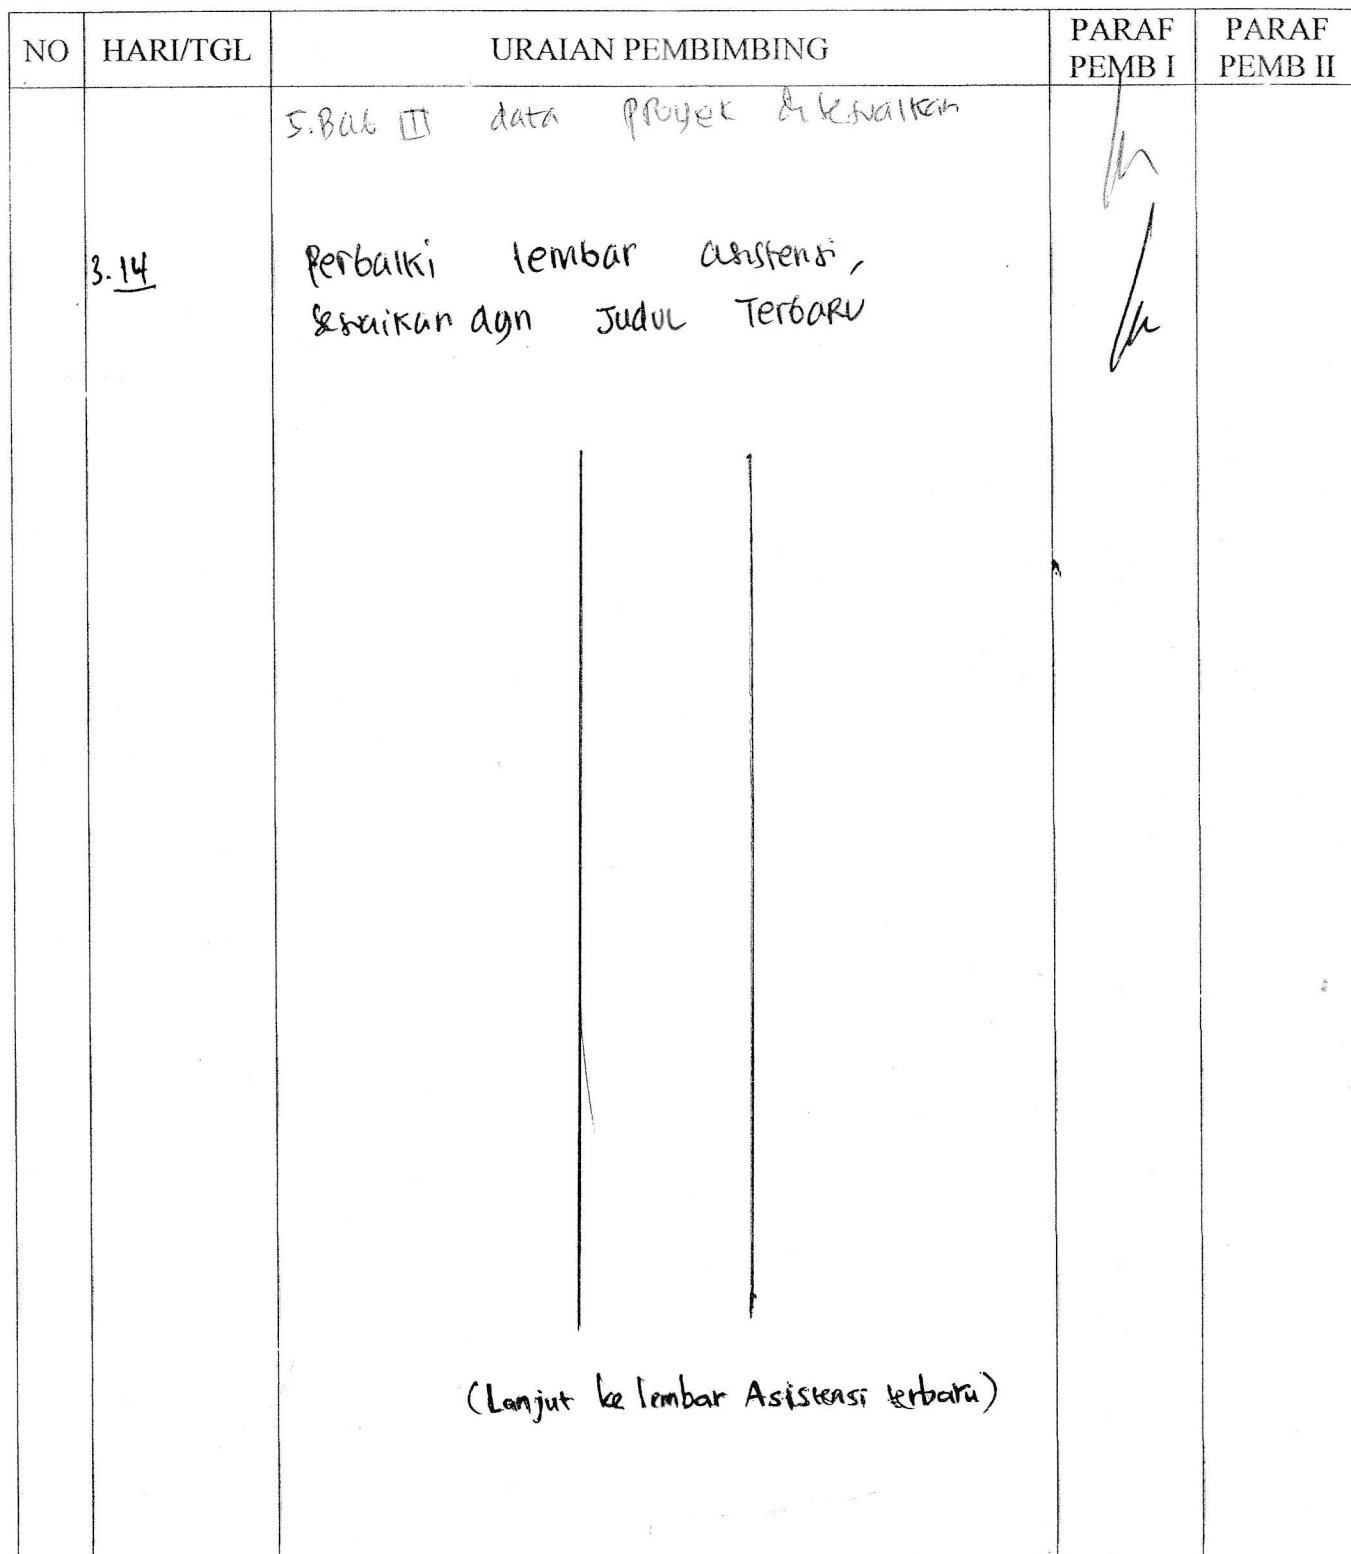 NO HARI/TGL URAIAN PEMBIMBING PARAF PEMB I PARAF PEMB II
5. Bab III data proyek disesuaikan
3.14 Perbaiki lembar asistensi,
sesuaikan dgn Judul Terbaru
(Lanjut ke lembar Asistensi terbaru)